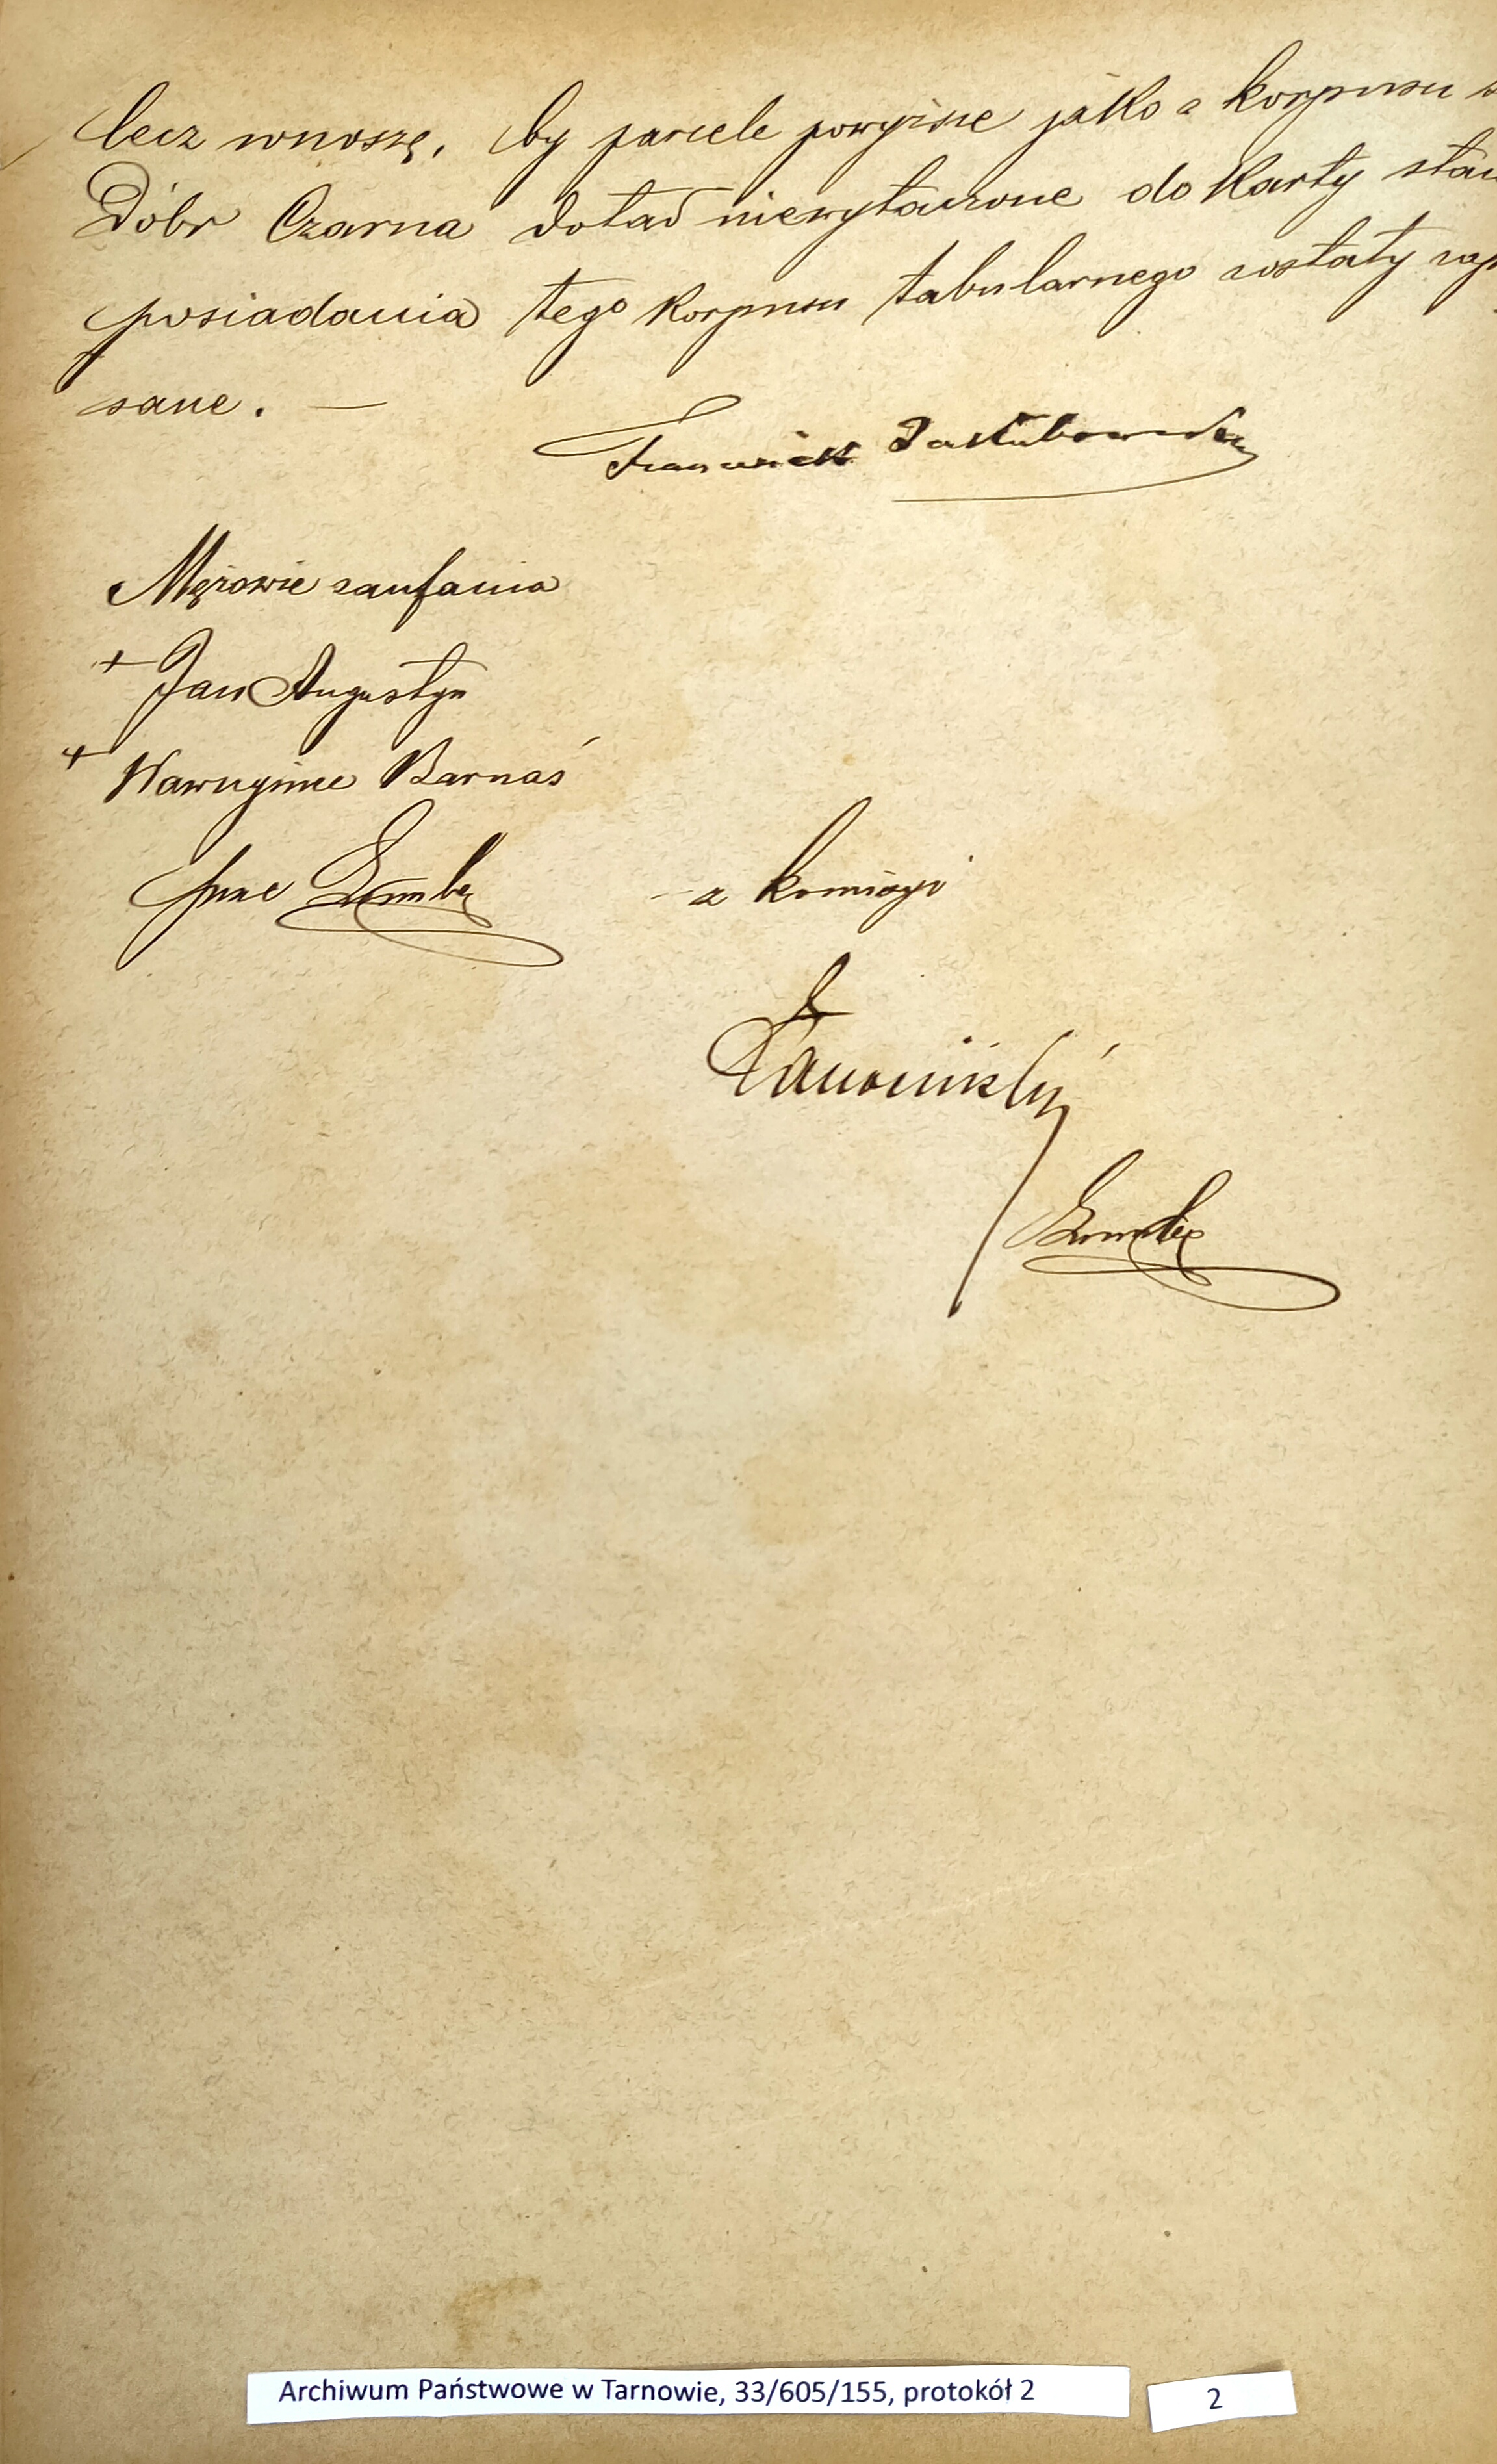 lecz wnoszę, by parcele powyższe jako z korpusu
Dóbr Czarna dotąd niewyłączone do Karty stanu
posiadania tego Korpusu tabularnego zostały zapi
sane. —
Franciszek Jakubowski
Mężowie zaufania
+ Jan Augustyn
+ Wawrzyniec Barnaś
przez
z komisyi
Archiwum Państwowe w Tarnowie, 33/605/155, protokół 2
2